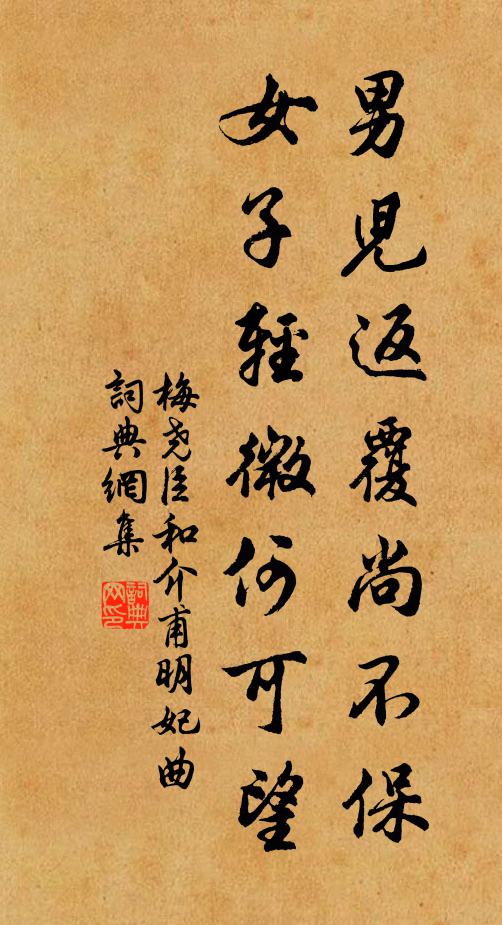 男兒返覆尚不保
女子輕微何可望
梅尧臣和介甫明妃曲
詞典網集
詞典網印